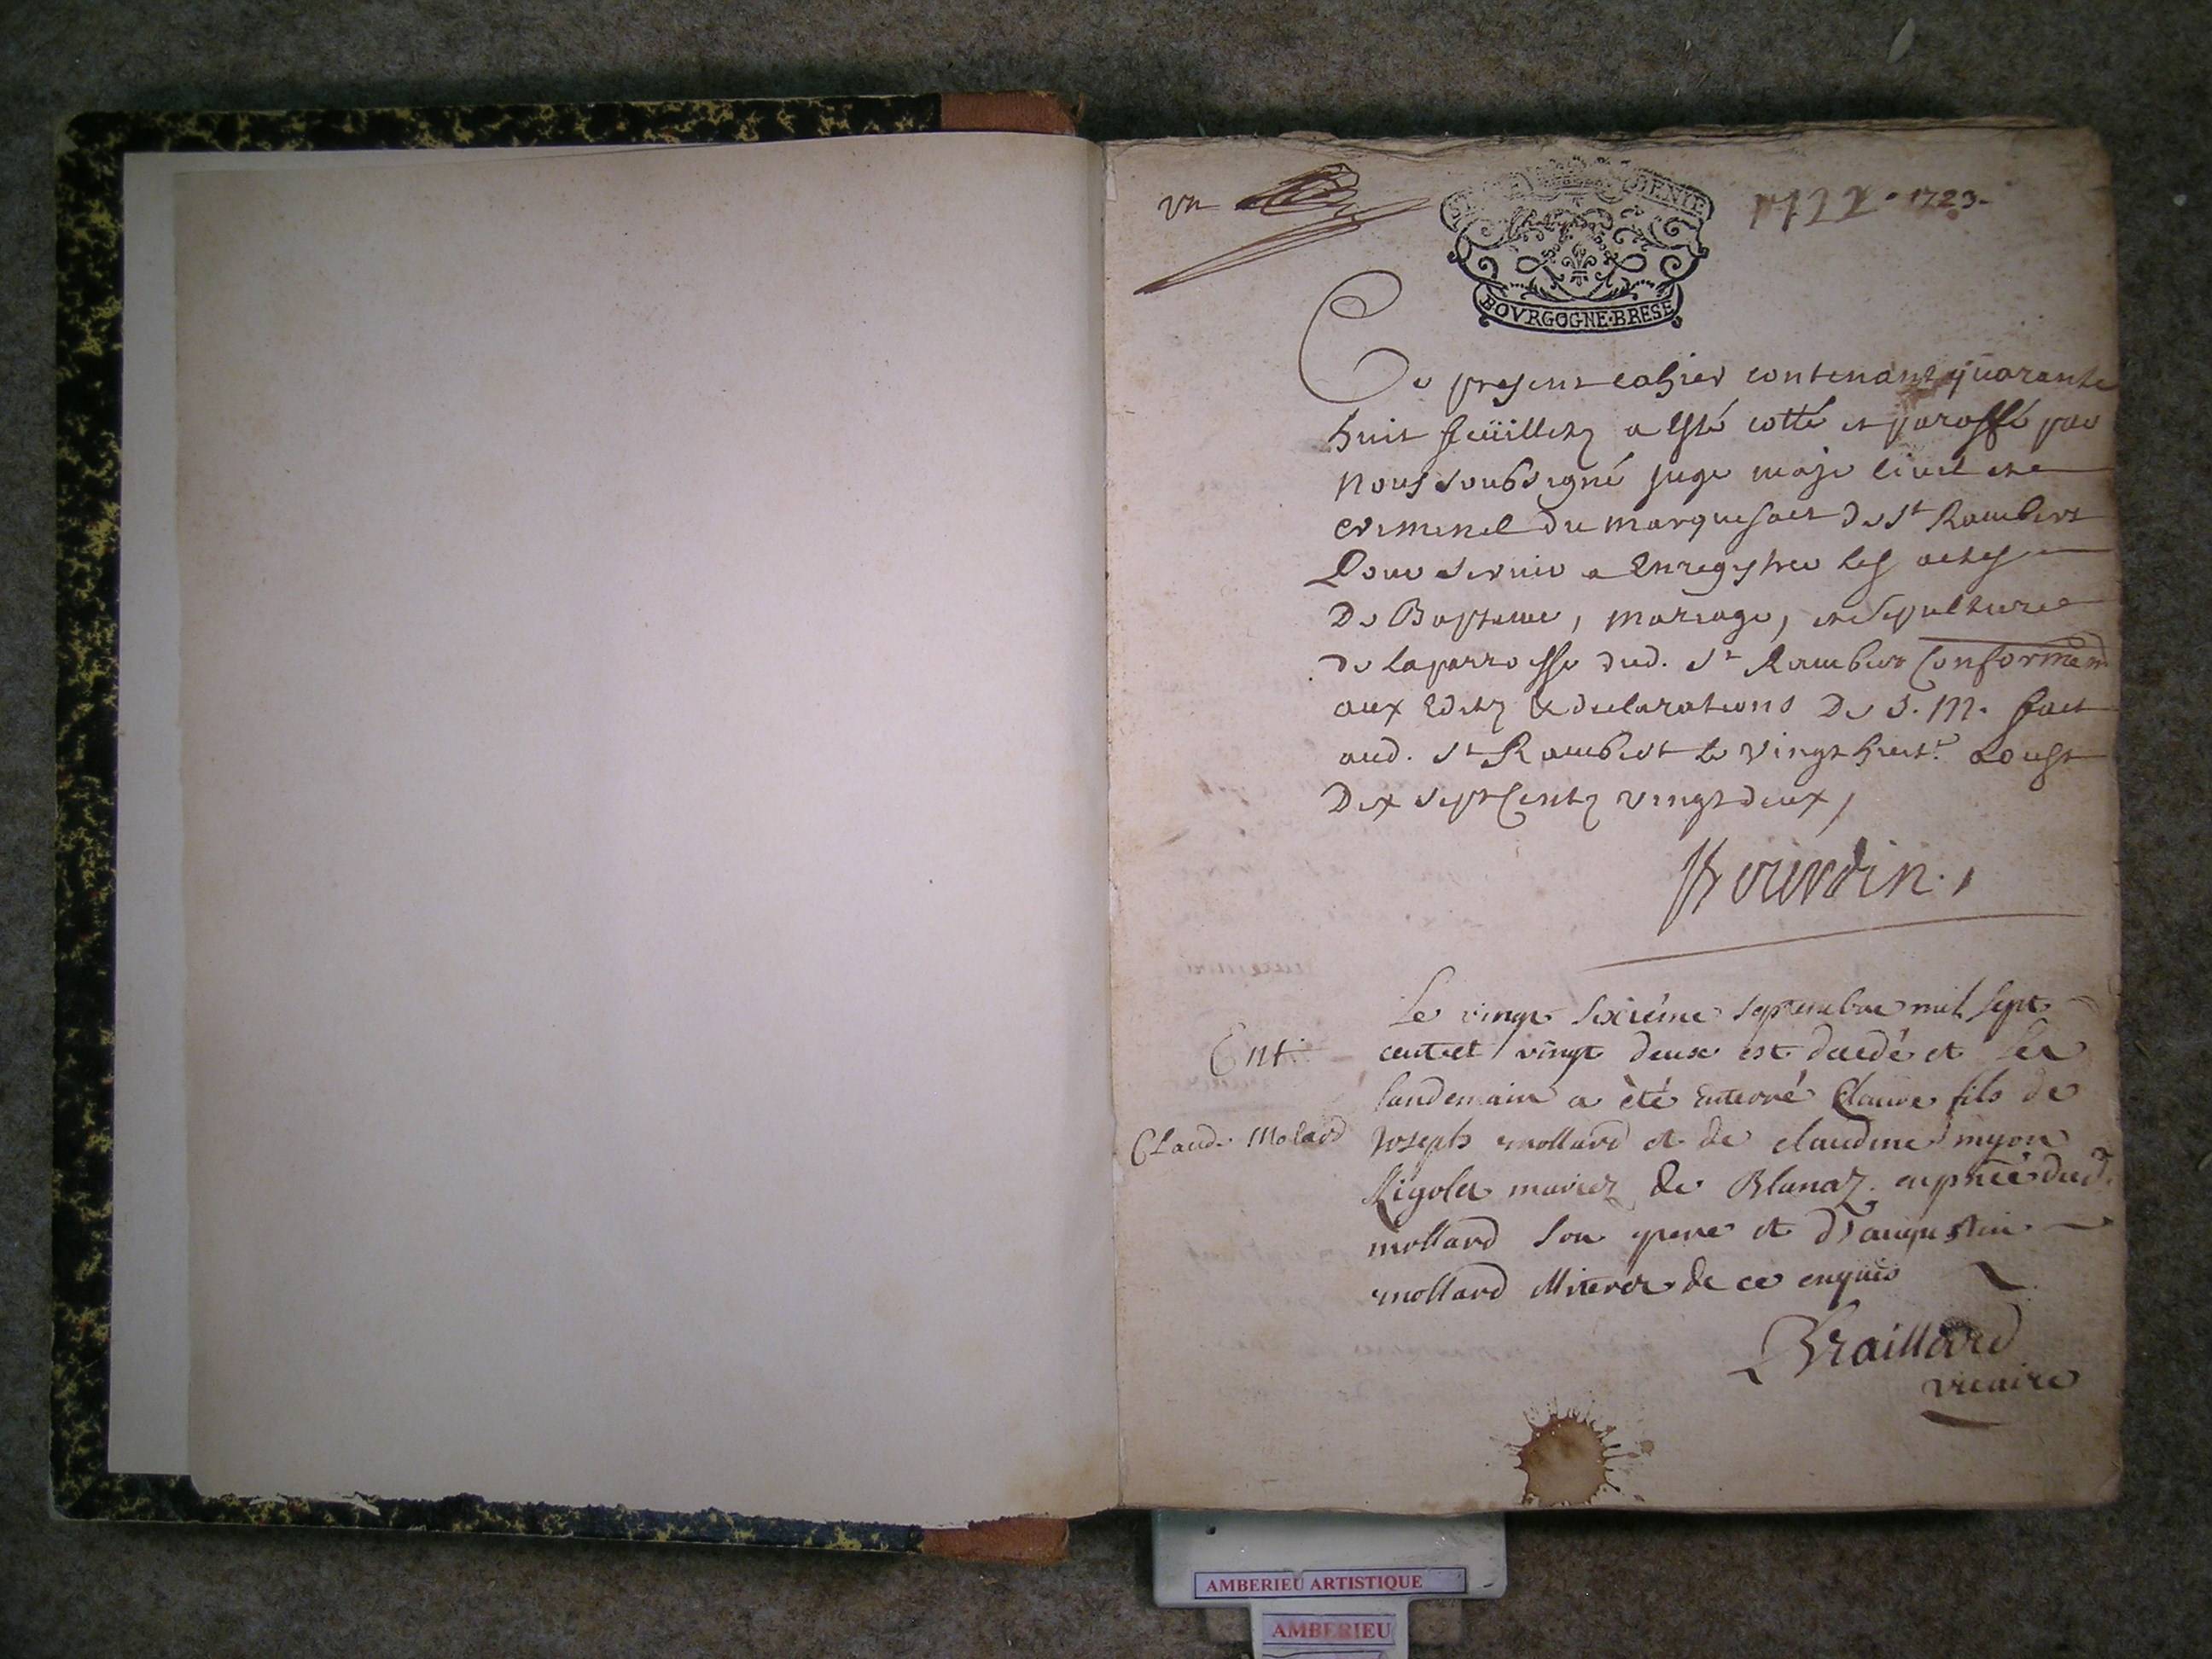 vn
1722 - 1723 -
BOVRGOGNE·BRESE
Ce present cahier contenant quarante
huit feüilletz a esté cotté et paraffé par
nous soubsigné juge maje civil et
criminel du marquisact de St Rambert
Pour servir a Enregystrer les actes
De Bapteme, mariage, et sepulture
de la parroisse dud. St Rambert Conformem̄t
aux Editz & declarations De S. M. fait
aud. St Rambert le vingt huit.e aoust
Dix sept Centz vingt deux,
Le vingt sixiéme septembre mil sept
Ent.
cent et vingt deux est decedé et le
landemain a été enterré Claude fils de
Claude Molard
Joseph mollard et de claudine myon
Rigolet mariez de Blanaz en pñce dud.
mollard son pere et d'augustin
mollard illiterez de ce enquis
Braillard
vicaire
AMBERIEU ARTISTIQUE
AMBERIEU